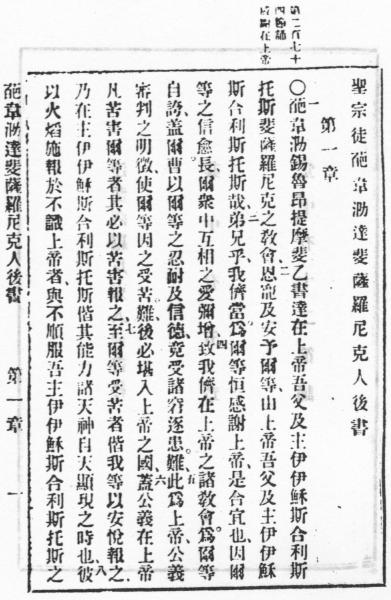 第二百七十
在上帝
聖宗徒葩韋泐達斐薩羅尼克人後書
第一章
○葩韋泐錫魯昂提摩斐乙書達在上帝吾父及主伊伊穌斯合利斯
托斯斐薩羅尼克之敎會、恩寵及安予爾等、由上帝吾父及主伊伊穌
斯合利斯托斯哉、弟兄乎、我儕當爲爾等恒感謝上帝、是合宜也、因爾
等之信愈長、爾衆中互相之愛彌增、致我儕在上帝之諸敎會、爲爾等
自誇、蓋爾曹以爾等之忍耐及信德、竟受諸窮逐患難、此爲上帝公義
審判之明徵、使爾等因之受苦難、後必堪入上帝之國、蓋公義在上帝
凡苦害爾等者、其必以苦害報之、至爾等受苦者、偕我等以安悅報之、
乃在主伊伊穌斯合利斯托斯偕其能力諸天神自天顯現之時也、彼
以火焰施報於不識上帝者、與不順服吾主伊伊穌斯合利斯托斯之
葩韋泐達斐薩羅尼克人後書 第一章 一